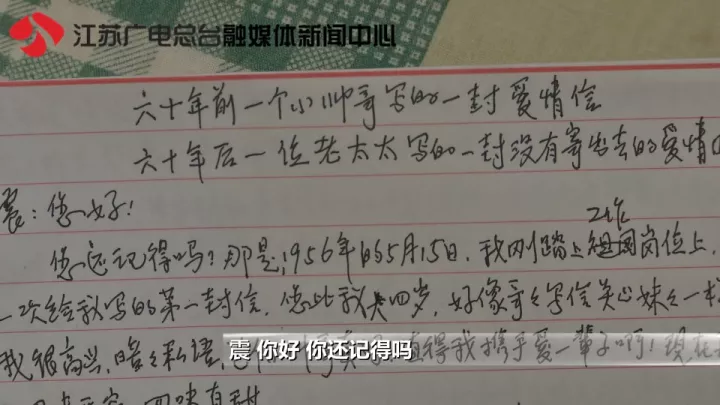 江苏广电总台融媒体新闻中心
六十年前一个小帅哥写的一封爱情信
六十年后一位老太太写的一封没有寄出去的爱情
震：您好！
工作
您还记得吗？那是1956年的5月15日，我刚踏上祖国岗位上，
一次给我写的第一封信，您比我大四岁，好像哥哥写信关心妹妹一
我很高兴，暗暗私语，值得我携手爱一辈子啊！现在
震 你好 你还记得吗
回味有甜